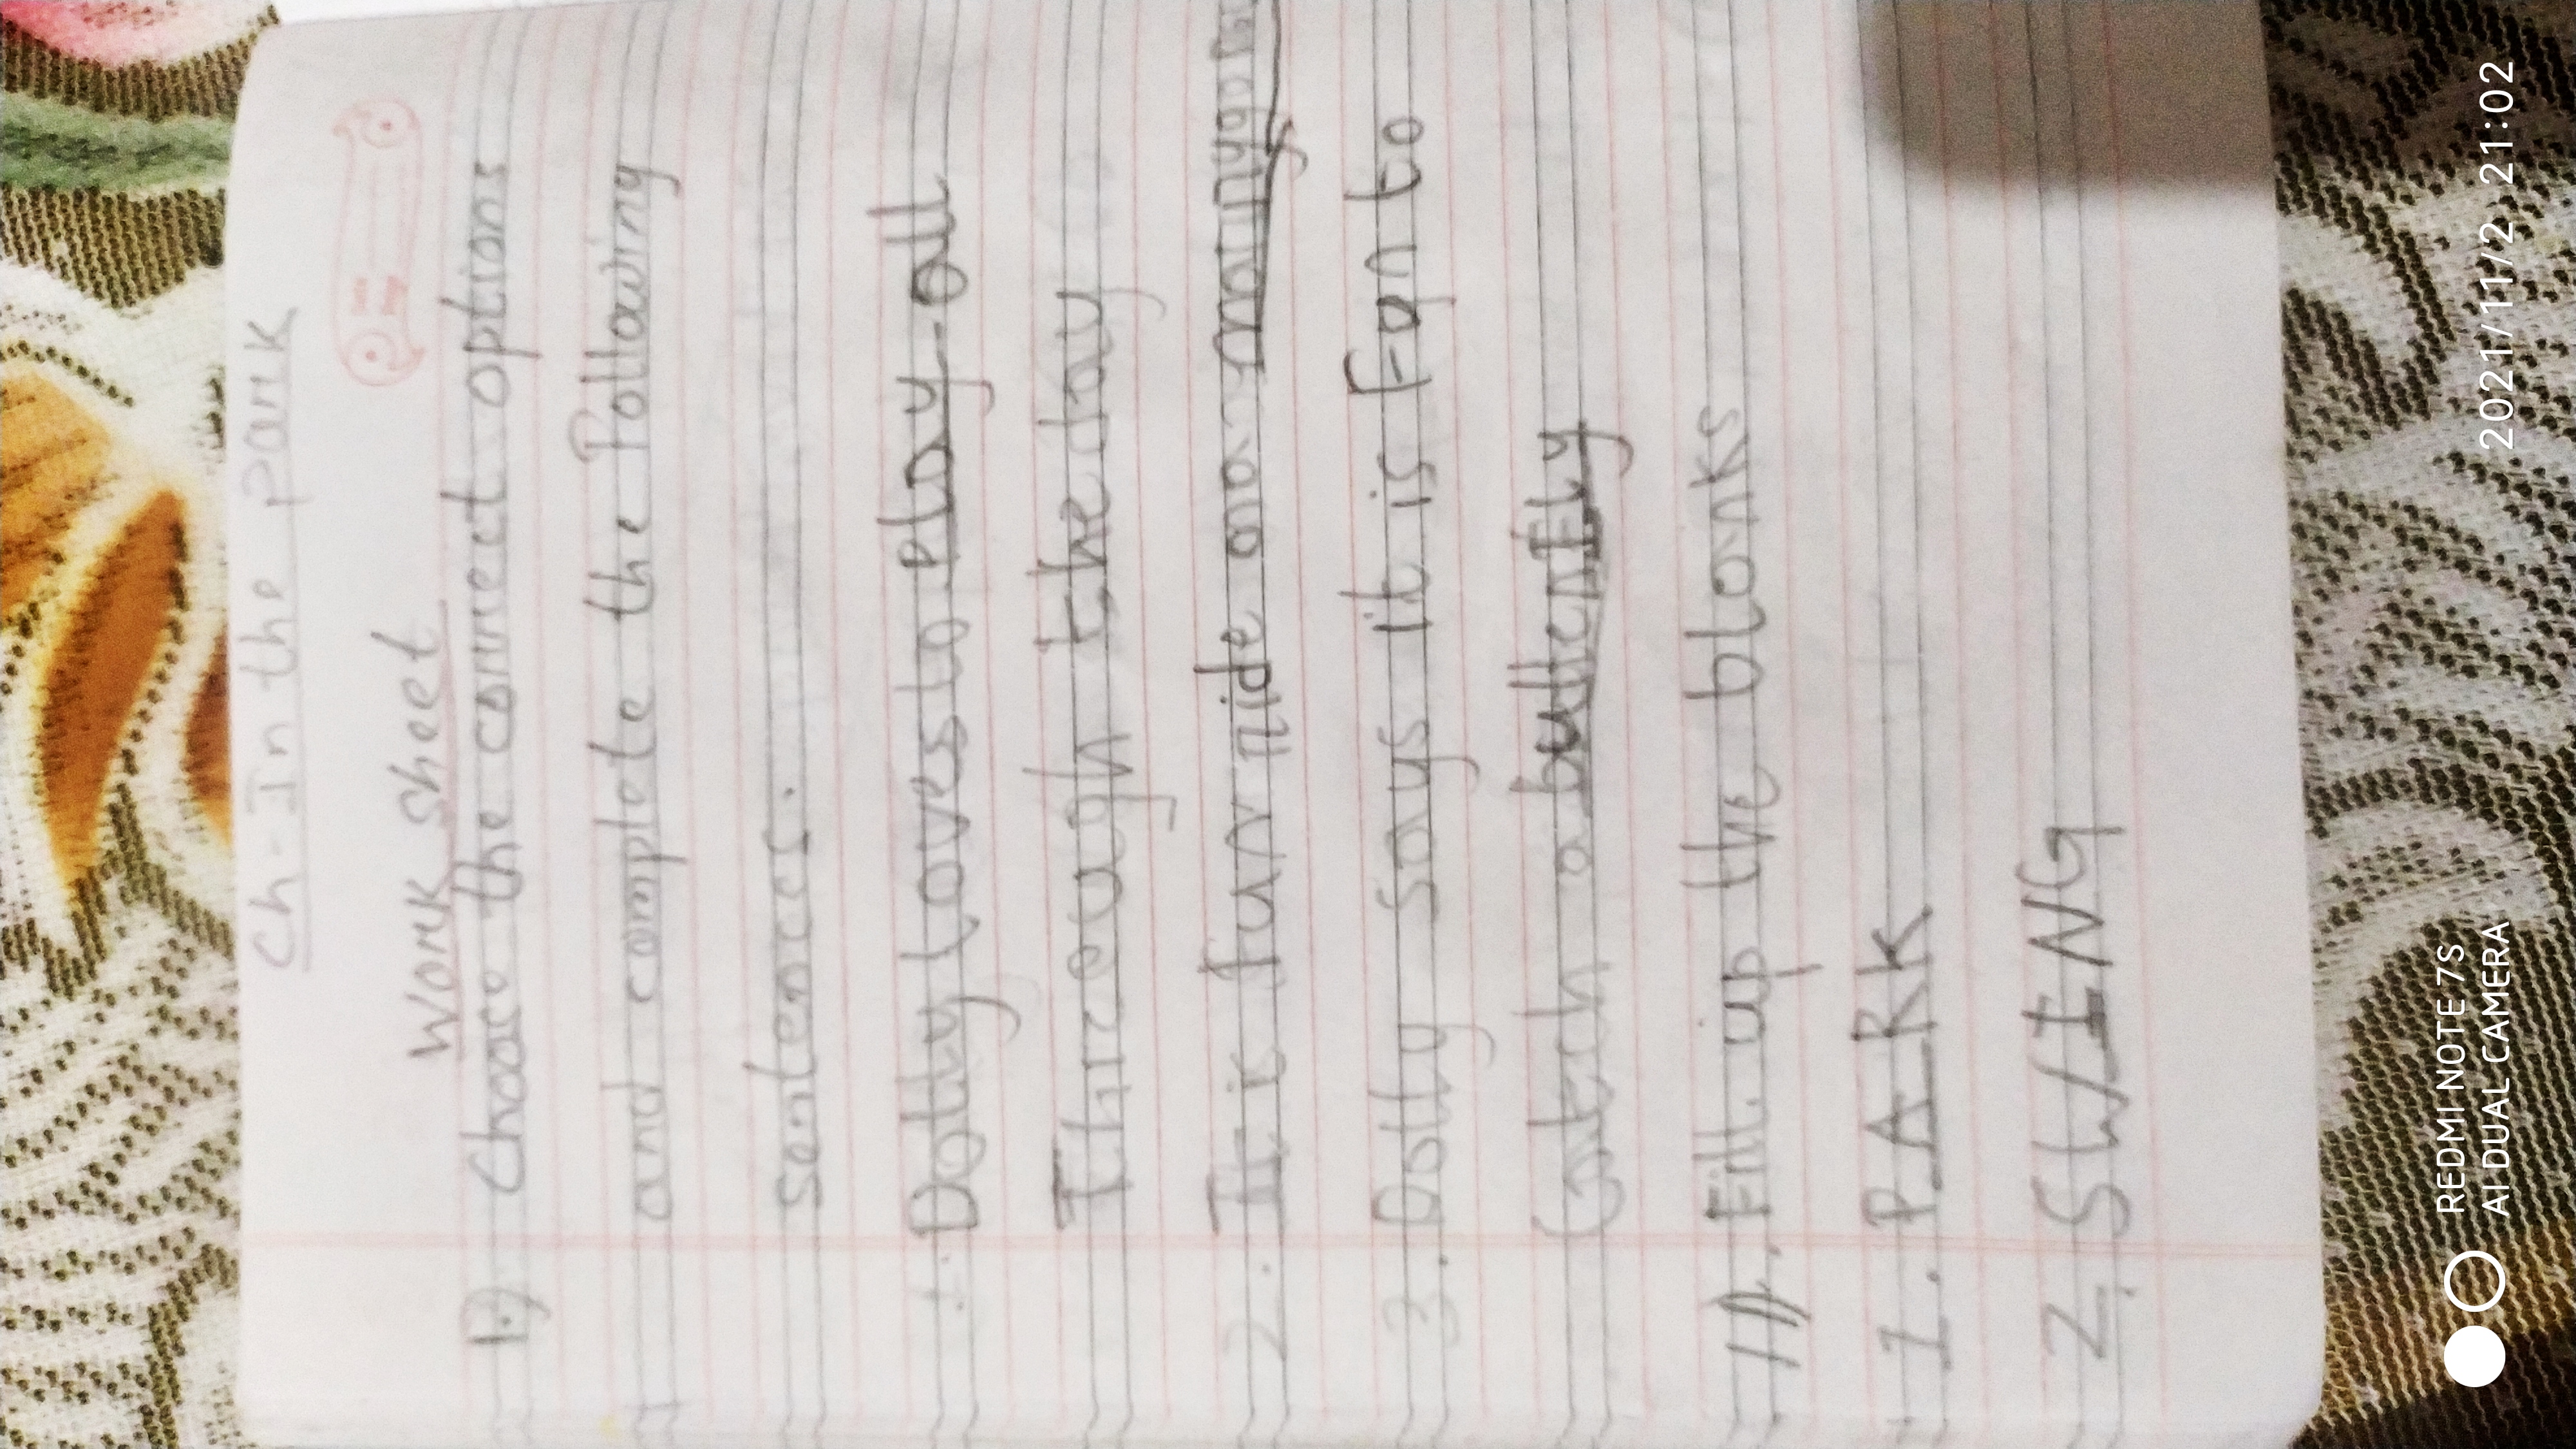 Ch-In the park
Work sheet
I) Choace the correct options
and complete the Following
sentences.
1. Dolly Loves to Play all
Through the day
2. It is fun ride on a
3. Dolly says it is Fun to
Catch a butterfly
II. Fill up the blanks
1. PARK
2. SWING
REDMI NOTE 7S
AI DUAL CAMERA
2021/11/2 21:02